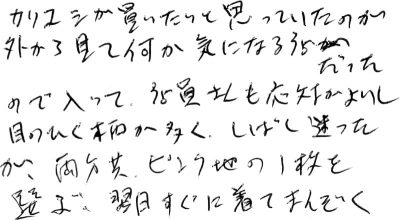 カリユシが買いたいと思っていたのが
外から見て何か気になる店
だった
ので入って、店員さんも応対がよいし
目のひく柄が多く、しばし迷った
が、両方共、ピンク地の1枚を
まで、翌日すぐに着てまんぞく